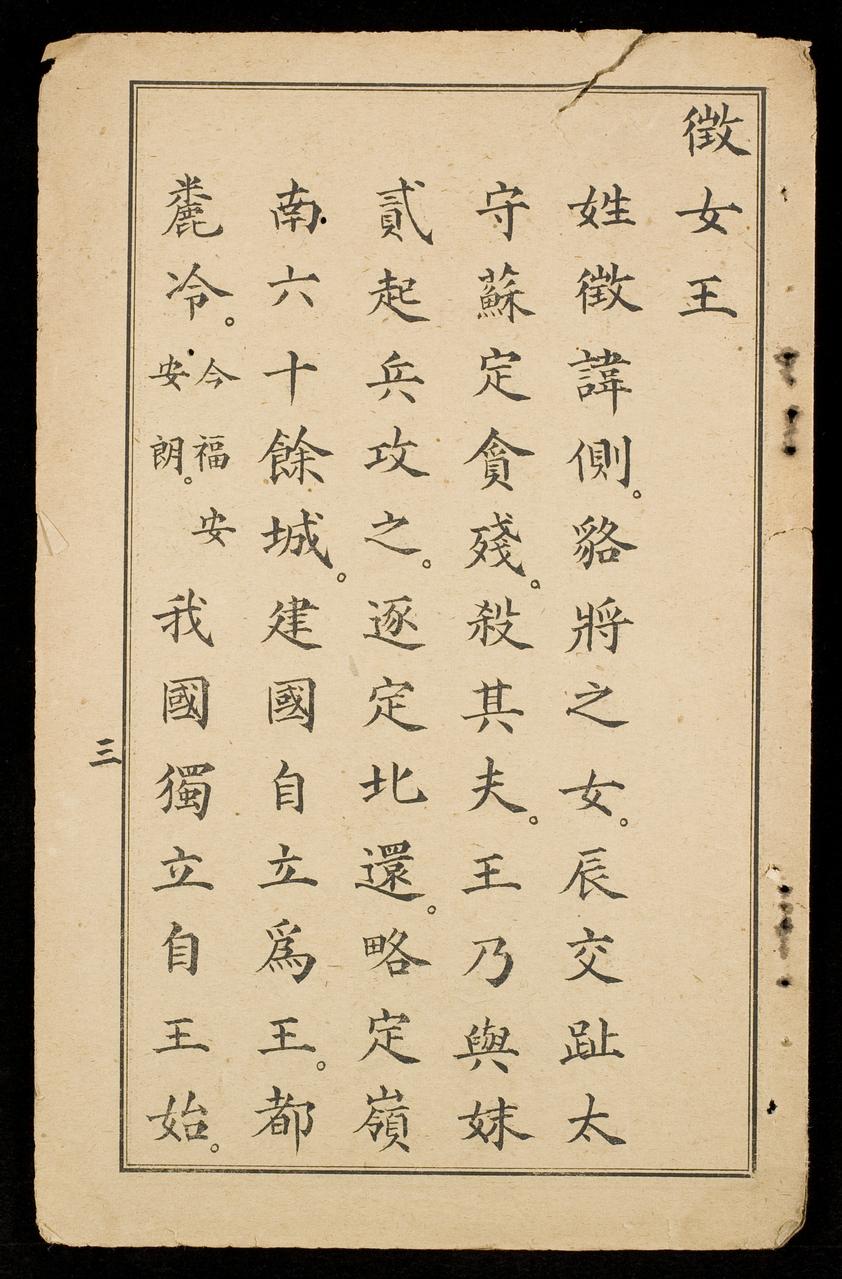 徵女王
姓徵諱側。貉將之女。辰交趾太
守蘇定貪殘。殺其夫。王乃與妹
貳起兵攻之。逐定北還。略定嶺
南六十餘城。建國自立爲王。都
麊冷。今福安安朗。我國獨立自王始。
三